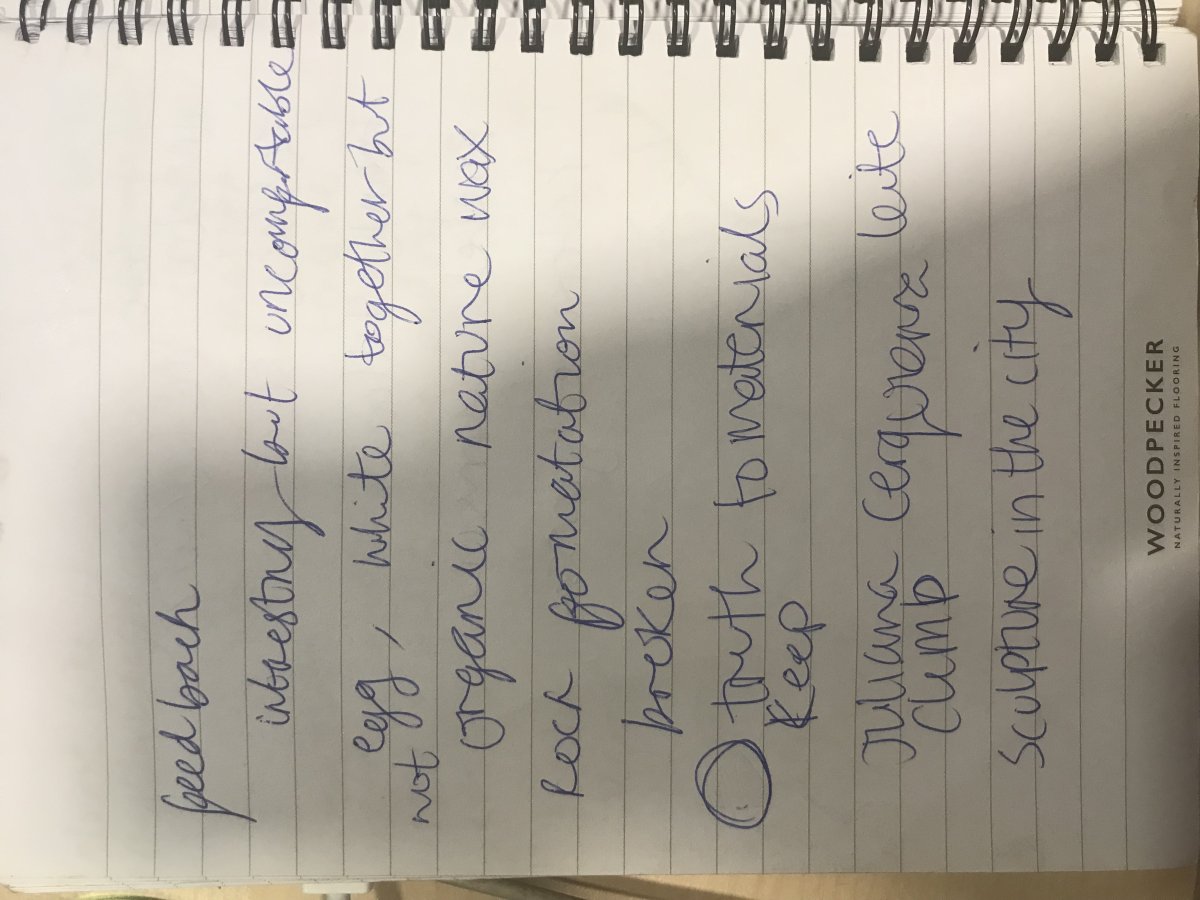 feedback
interesting but uncomfortable
egg, white together but
not
organic nature wax
Rock formatation
broken
truth to materials
Keep
Juliana Cerqueira leite
Climb
Sculpture in the city
WOODPECKER
NATURALLY INSPIRED FLOORING